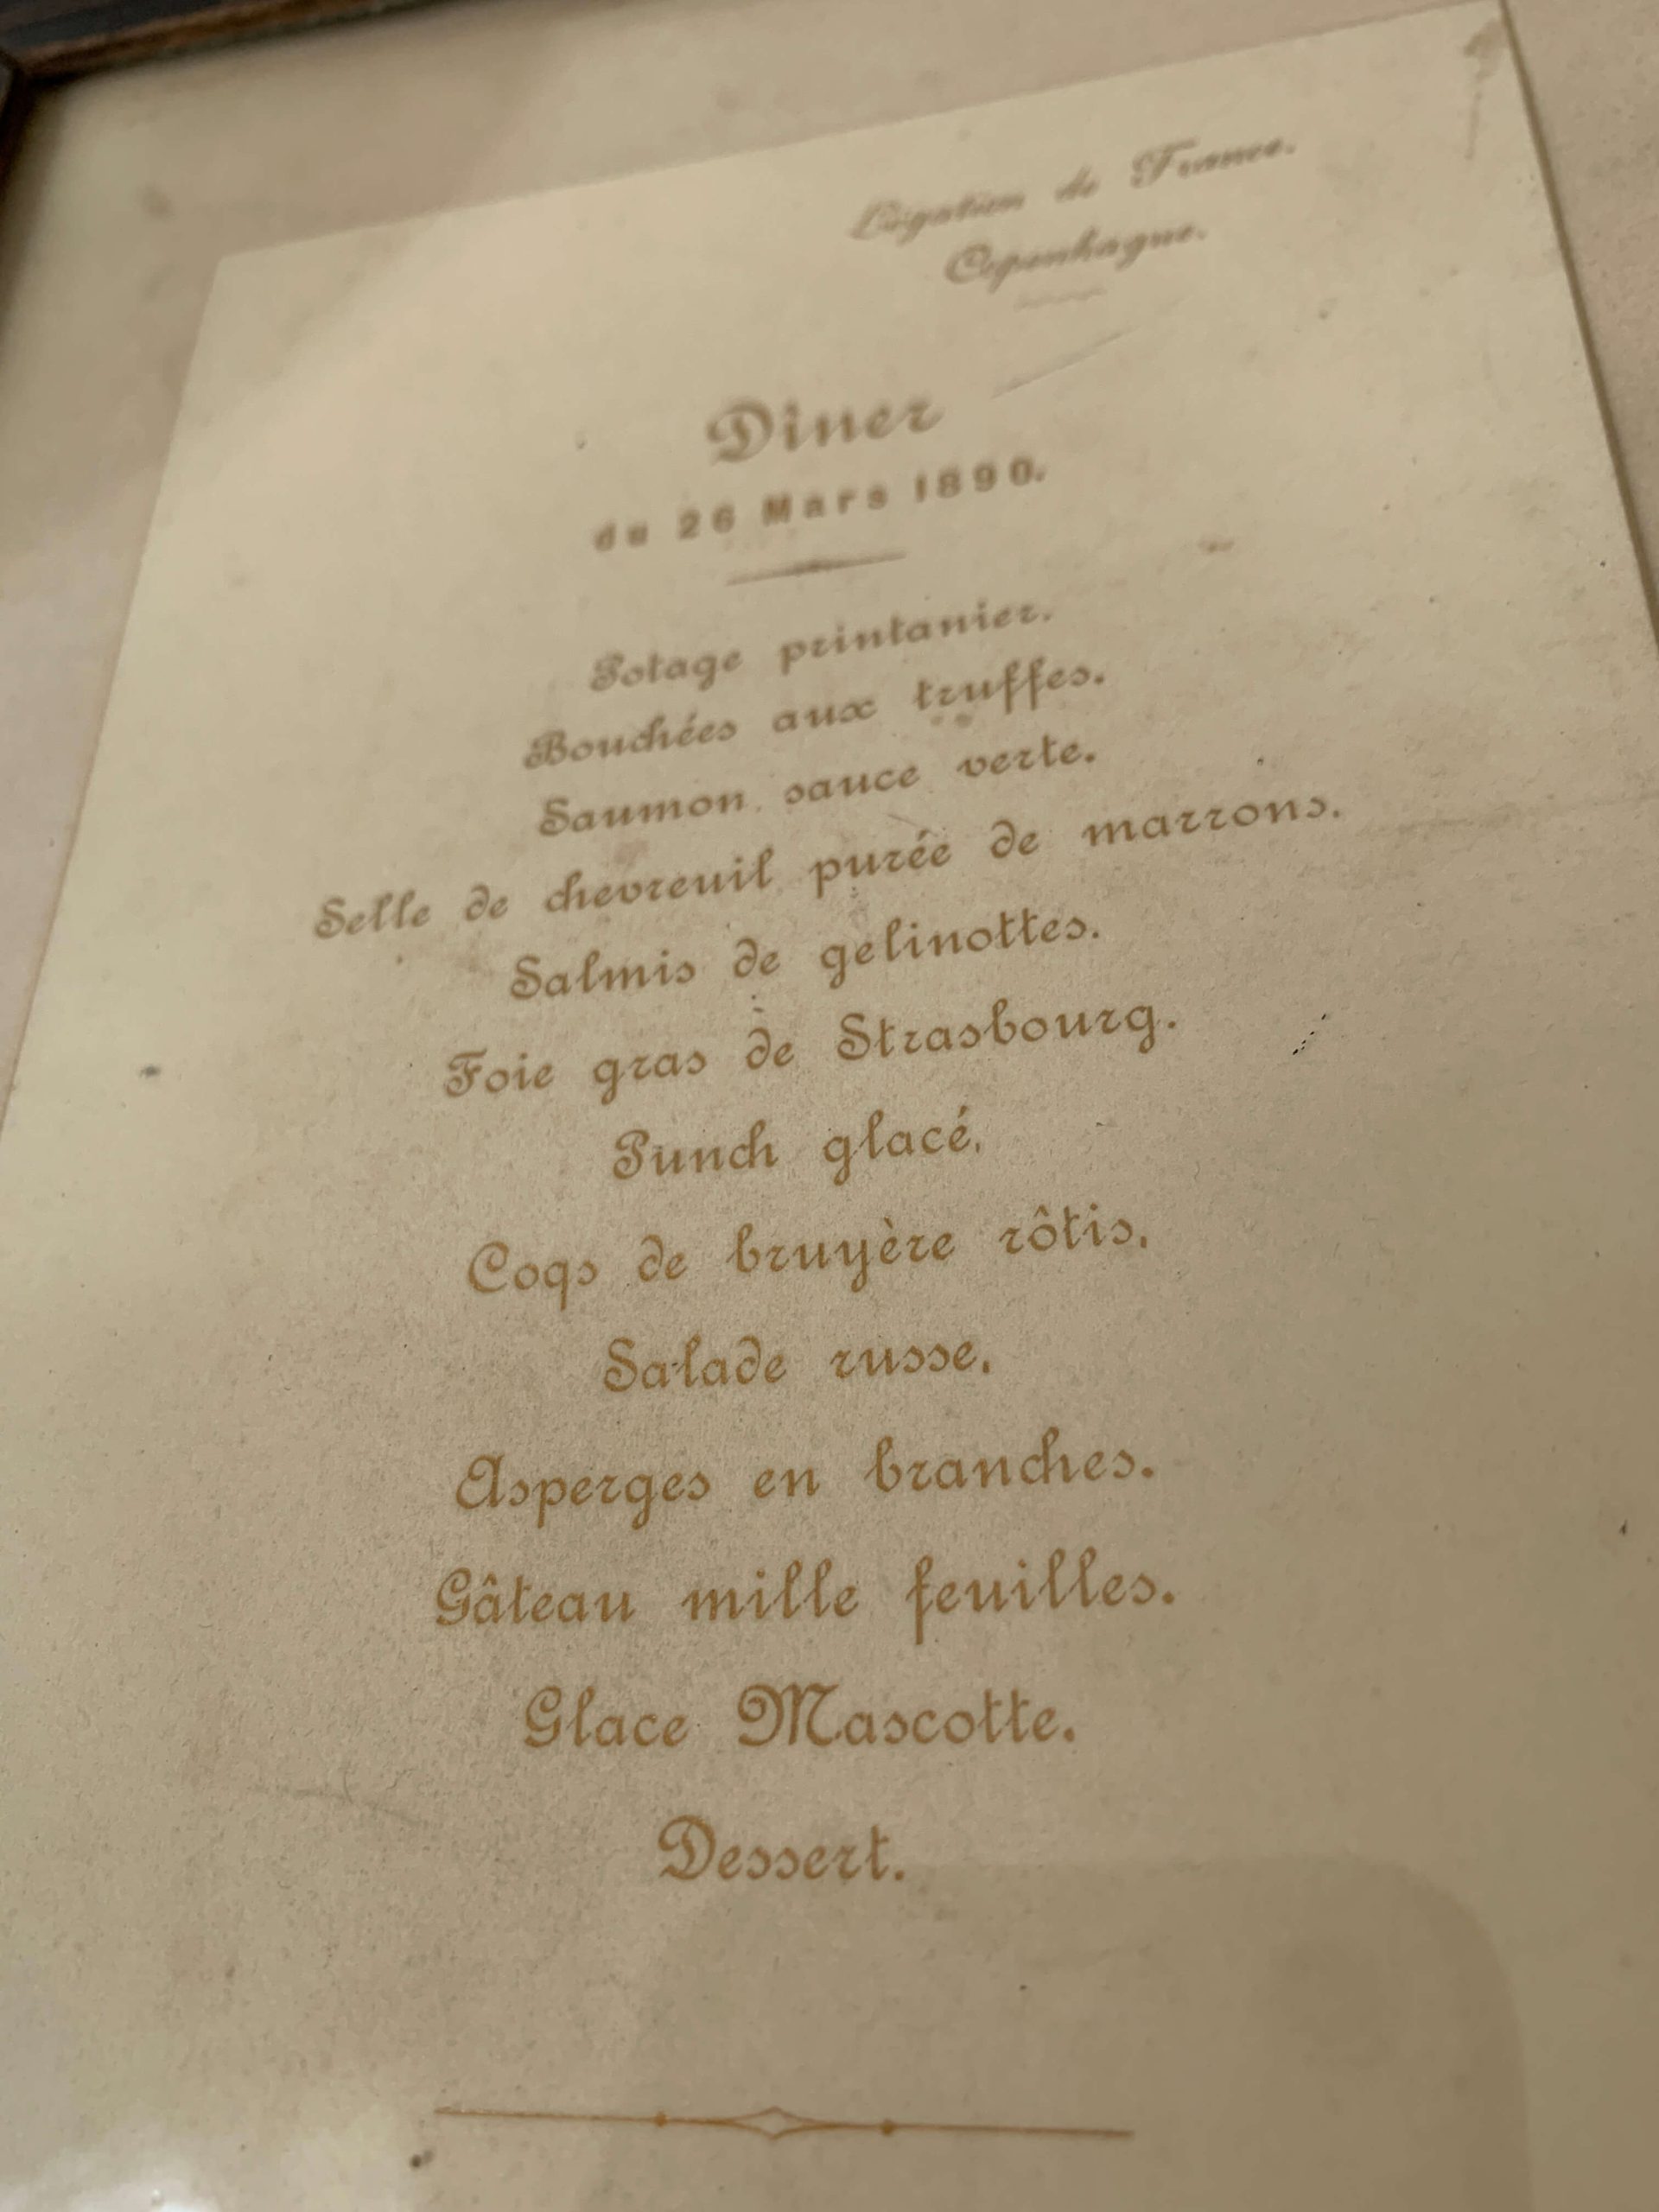 Légation de France.
Copenhague.
Dîner
du 26 Mars 1890.
Potage printanier.
Bouchées aux truffes.
Saumon sauce verte.
Selle de chevreuil purée de marrons.
Salmis de gelinottes.
Foie gras de Strasbourg.
Punch glacé.
Coqs de bruyère rôtis.
Salade russe.
Asperges en branches.
Gâteau mille feuilles.
Glace Mascotte.
Dessert.